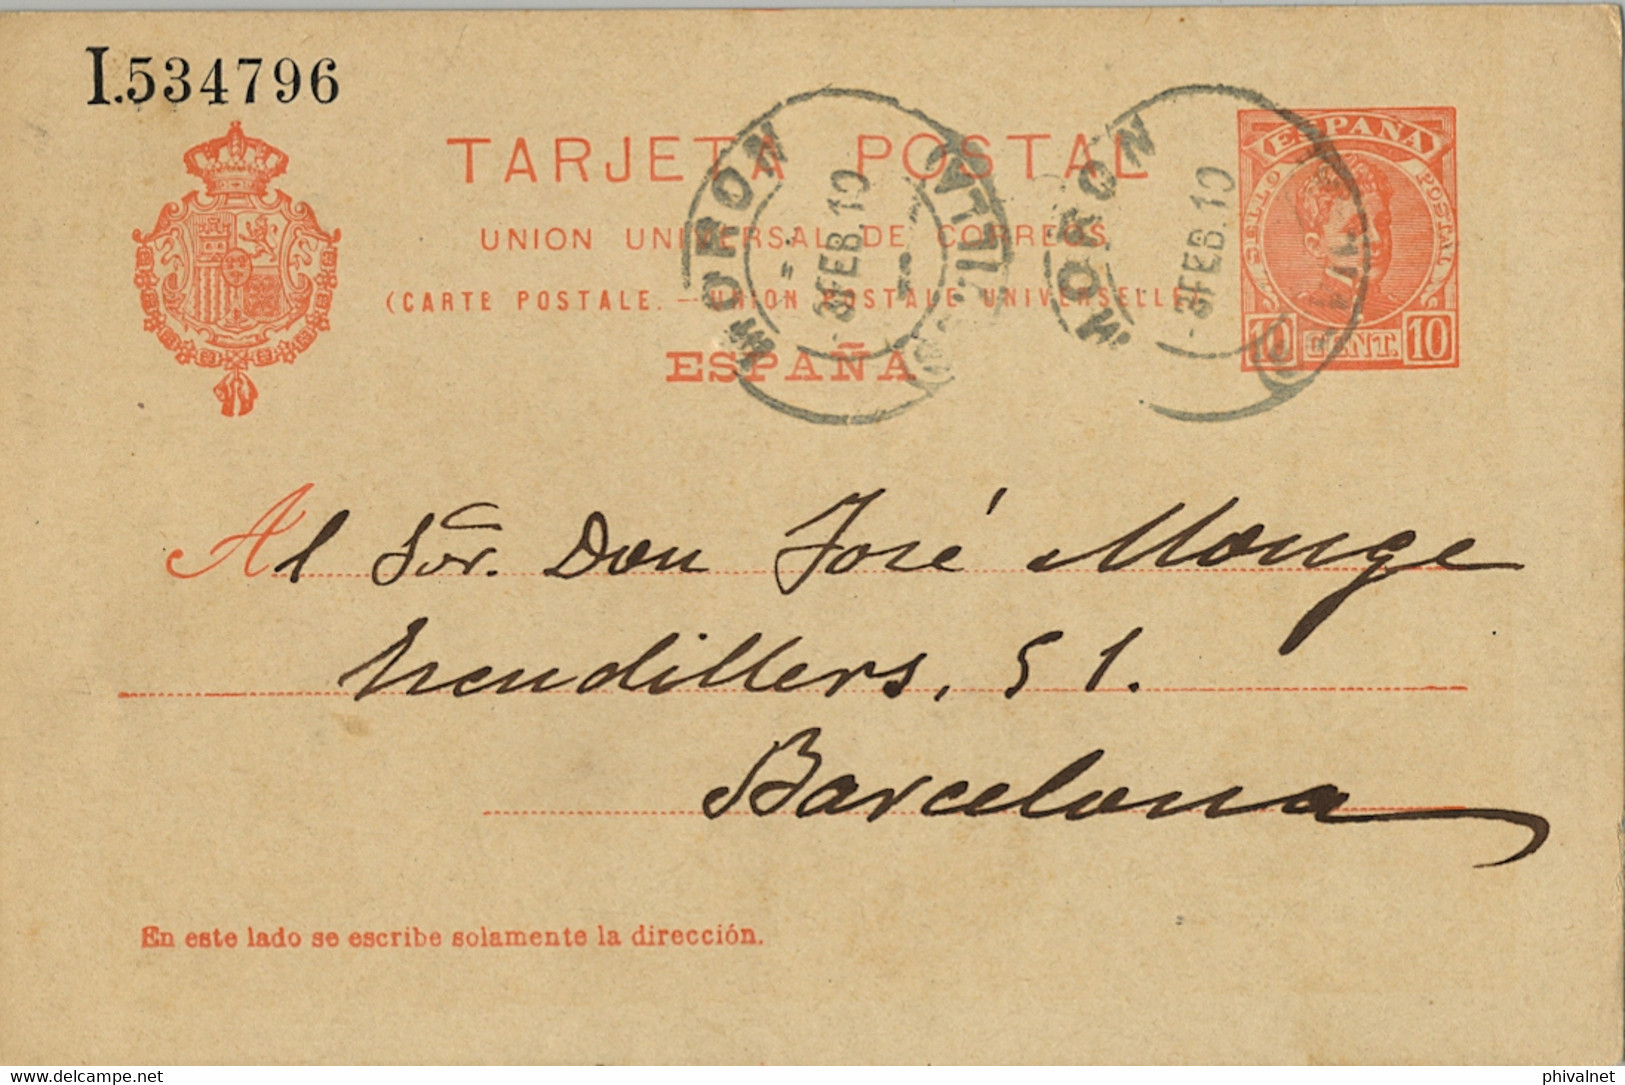 I.534796
TARJETA POSTAL
UNION UNIVERSAL DE CORREOS
(CARTE POSTALE.—UNION POSTALE UNIVERSELLE
ESPAÑA
MORON
3 FEB. 10
MORON
3 FEB. 10
ESPAÑA
SELLO POSTAL
10 CENT. 10
Al Sor. Don José Monge
Escudillers, 51.
Barcelona
En este lado se escribe solamente la dirección.
delcampe.net
phivalnet